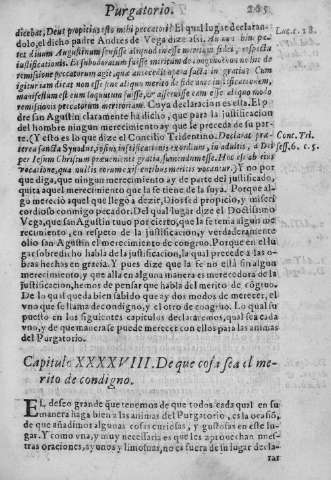 Purgatorio. 245
dicebat, Deus propitius esto mihi peccatori? El qual lugar declaran- Luc. c. 18.
dolo, el dicho padre Andres de Vega dize assi. Audiui bim pa-
tet diuum Augustinum sensisse aliquod inesse meritum fidei, respectu
iustificationis. Et subodoratum fuisse meritum de congruo
remissione peccatorum agit, qua antecedit opera facta in gratia: Cum
igitur iam dicat non esse sine aliquo merito fidei
manifestum est eum loqui, & asseruisse eam esse aliquo modo
remissionis peccatorum meritoriam. Cuya declaracion es esta. El pa-
dre san Agustin claramente ha dicho, que para la justificacion
del hombre ningun merecimiento ay que le preceda de su par-
te. (Y esto es lo que dize el Concilio Tridentino. Declarat præ- Conc. Tri.
terea sancta Synodus, ipsius iustificationis exordium, in adultis, a Dei sess. 6. c. 5.
per Iesum Christum præueniente gratia, sumendum esse. Hoc est ab eius
vocatione, qua nullis eorum existentibus meritis vocantur.) Y no por
que diga, que ningun merecimiento ay de parte del justificado,
quita aquel merecimiento que la fe tiene de suya. Porque al-
go merecio aquel que llegò a dezir, Dios sed propicio, y miseri
cordioso conmigo pecador. Del qual lugar dize el Doctissimo
Vega, que san Agustin tuuo por cierto, que la fe tenia algun me
recimiento, en respeto de la justificacion, y verdaderamente
olio san Agustin el merecimiento de congruo. Porque en el lu-
gar sobredicho habla de la justificacion, la qual precede a las o-
bras hechos en gracia. Y pues dize que la fe no està sin algun
merecimiento, y que alla en alguna manera es merecedora de la
justificacion, hemos de pensar que habla del merito de cõgruo.
De lo qual queda bien sabido que ay dos modos de merecer, el
vno que se llama de condigno, y el otro de congruo. Lo qual su
puesto en los siguientes capitulos declararemos, qual sea cada
vno, y de que manera se puede merecer con ellos para las animas
del Purgatorio.
Capitulo XXXXVIII. De que cosa sea el me-
rito de condigno.
EL deseo grande que tenemos de que todos cada qual en su
manera haga bien a las animas del Purgatorio, es la ocasiõ,
de que añadimos algunas cosas curiosas, y gustosas en este lu-
gar. Y como vna, y muy necessaria es que les aprouechan nues-
tras oraciones, ayunos y limosnas, no es fuera de su lugar decla-
rar